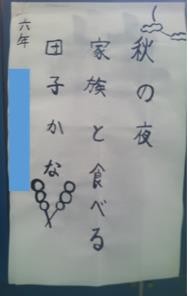 秋の夜
家族と食べる
団子かな
六年